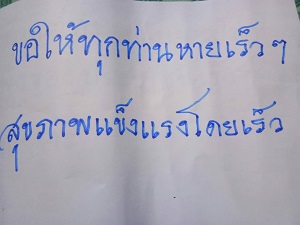 ขอให้ทุกท่านหายเร็วๆ
สุขภาพแข็งแรงโดยเร็ว